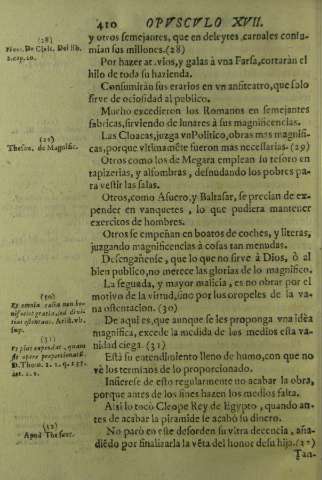 410 OPVSCVLO XVII.
(28)
Nov. De Civit. Dei lib.
2. cap. 20.
y otros semejantes, que en deleytes carnales consu-
mían sus millones. (28)
Por hazer atavios, y galas à vna Farsa, cortaràn el
hilo de toda su hazienda.
Consumiràn sus erarios en vn anfiteatro, que solo
sirve de ociosidad al publico.
Mucho excedieron los Romanos en semejantes
fabricas, sirviendo de lunares à sus magnificencias.
(29)
Thesau. de Magnific.
Las Cloacas, juzga vn Politico, obras mas magnifi-
cas, porque vltimamẽte fueron mas necessarias. (29)
Otros como los de Megara emplean su tesoro en
tapizerias, y alfombras, desnudando los pobres pa-
ra vestir las salas.
Otros, como Asuero, y Baltasar, se precian de ex-
pender en vanquetes, lo que pudiera mantener
exercitos de hombres.
Otros se empeñan en boatos de coches, y literas,
juzgando magnificencias à cosas tan menudas.
Desengañense, que lo que no sirve à Dios, ò al
bien publico, no merece las glorias de lo magnifico.
La segũda, y mayor malicia, es no obrar por el
motivo de la virtud, sino por los oropeles de la va-
na ostentacion. (30)
(30)
Et omnia talia non ho-
nesti gratia, sed divi-
tias ostentans. Arist. vbi
sup.
De aqui es, que aunque se les proponga vna idèa
magnifica, excede la medida de los medios esta va-
nidad ciega. (31)
(31)
Et plus expendat, quam
sit opere proportionatũ.
D. Thom. 2. 2. q. 135.
art. 2. c.
Està su entendimiento lleno de humo, con que no
vè los terminos de lo proporcionado.
Infierese de esto regularmente no acabar la obra,
porque antes de los fines hazen los medios falta.
Assi lo tocò Cleope Rey de Egypto, quando an-
tes de acabar la piramide se acabò su dinero.
(32)
Apud Thesaur.
No parò en este desorden su vltra decencia, aña-
diẽdo por finalizarla la vẽta del honor de su hijo. (32)
Tan-